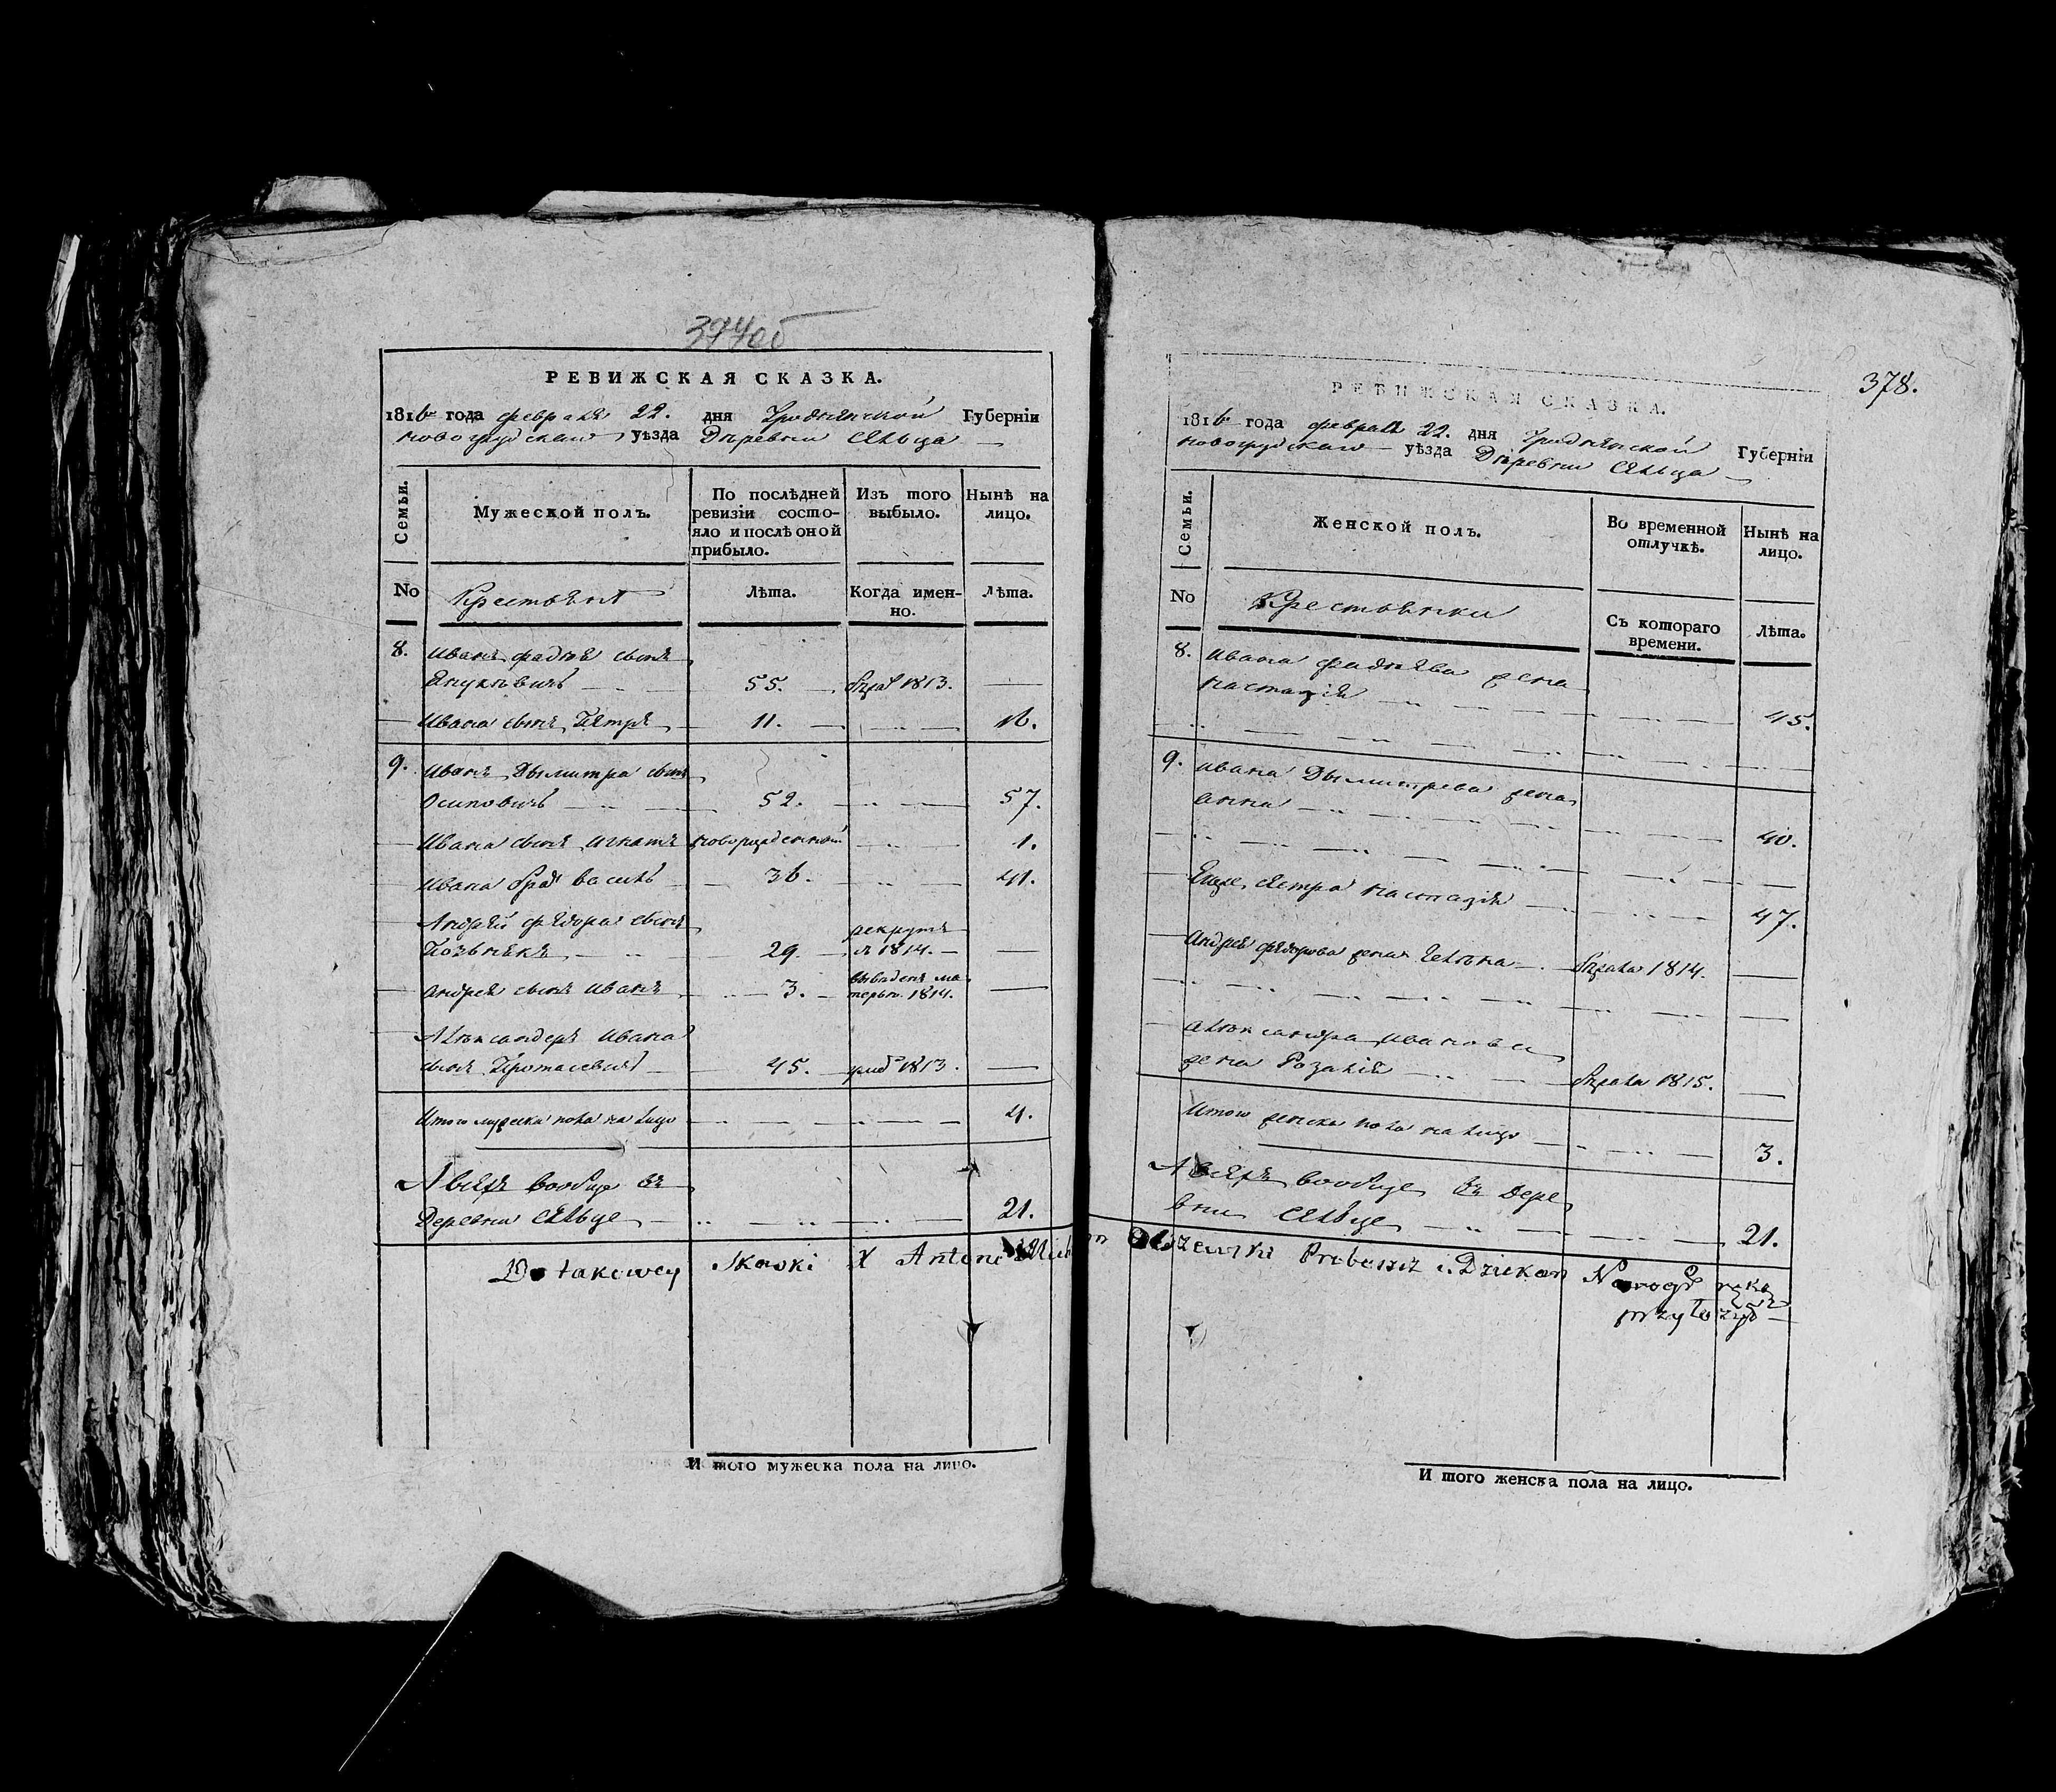 374об
РЕВИЖСКАЯ СКАЗКА.
1816 года февраля 22. дня Гродненской Губерніи
Новогрудскаго уѣзда Деревни Сельца
Семьи.
Мужеской полъ.
По послѣдней ревизіи состо-
яло и послѣ оной
прибыло.
Изъ того
выбыло.
Нынѣ на
лицо.
No
Крестьянѣ
Лѣта.
Когда имен-
но.
Лѣта.
8. Иванъ Фадѣя сынъ
55. 1813.
Ивана сынъ Петръ 11. 16.
9. Иванъ Дымитра сынъ
Осиповичъ 52. 57.
Ивана сынъ Игнатъ новорожденный 1.
Ивана братъ Василь 36. 41.
Андрей Федора сынъ рекрутъ
29. 1814.
Андрея сынъ Иванъ 3. ма-
терью 1814.
Александеръ Ивана
сынъ 45. 1813.
Итого мужеска пола на лицо 4.
А всехъ вообще въ
Деревни Сельце 21.
Do takowey Skazki X Antoni
И того мужеска пола на лицо.
378.
РЕВИЖСКАЯ СКАЗКА.
1816 года февраля 22. дня Гродненской Губерніи
Новогрудскаго уѣзда Деревни Сельца
Семьи.
Женской полъ.
Во временной
отлучкѣ.
Нынѣ на
лицо.
No
Крестьянки
Съ котораго
времени.
Лѣта.
8. Ивана Фадѣева жена
Настазія 45.
9. Ивана Дымитрева жена
Анна 40.
Его сестра Настазія 47.
Андрея Федорова жена 1814.
Александра Иванова
жена Розалія 1815.
Итого женска пола на лицо 3.
А всехъ вообще въ Дере
вни Сельце 21.
Proboszcz i Dziekan ręką
przyłożył
И того женска пола на лицо.